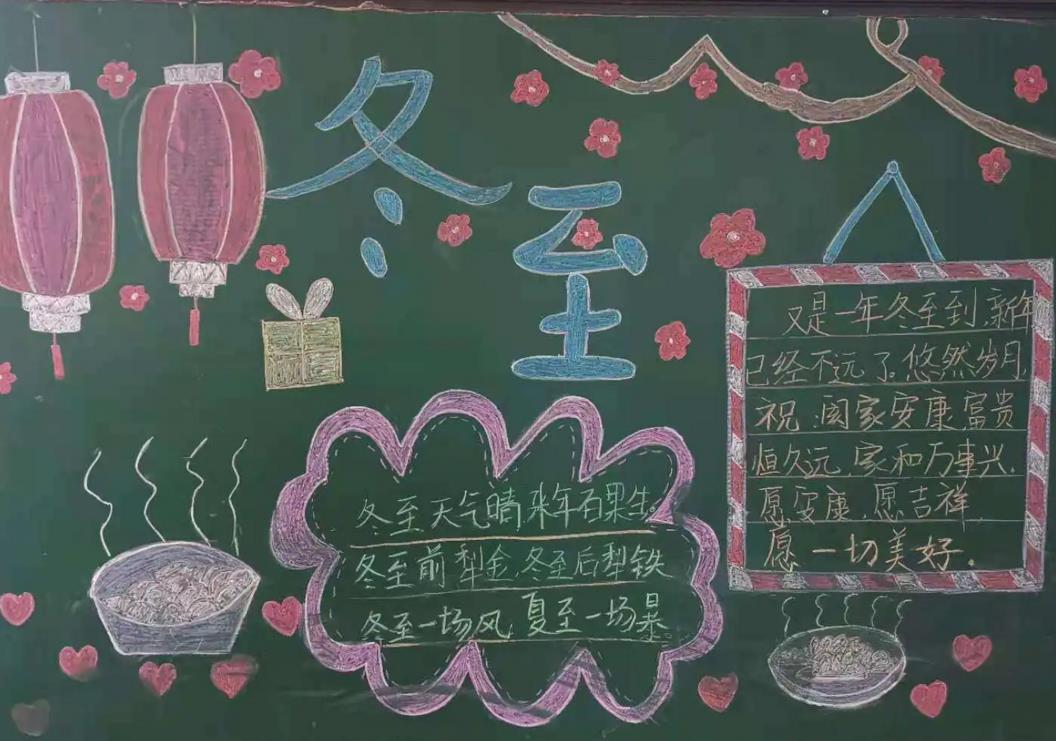 冬至
又是一年冬至到,新年
已经不远了。悠然岁月,
祝:阖家安康富贵
恒久远,家和万事兴,
愿安康,愿吉祥,
愿一切美好。
冬至天气晴来年石果生。
冬至前犁金,冬至后犁铁
冬至一场风,夏至一场暴。